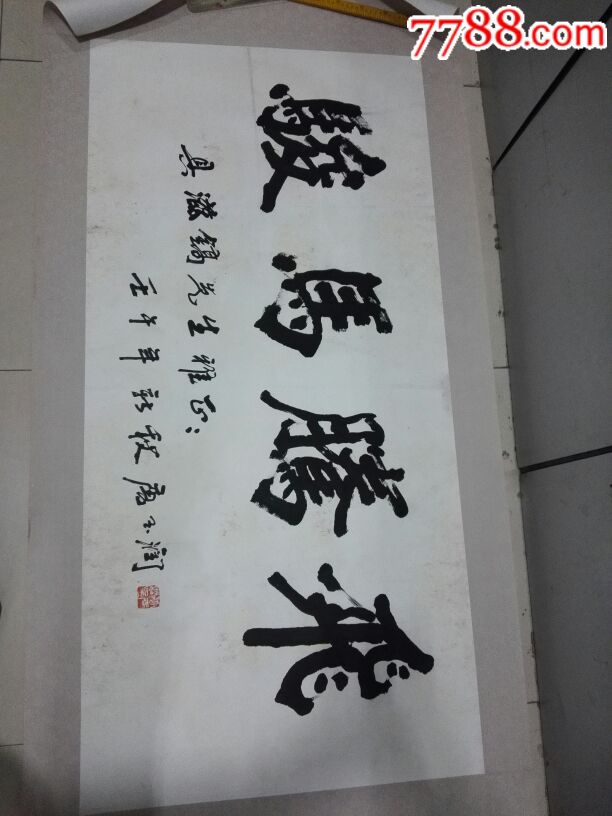 7788.com
駿馬騰飛
具滋鎬先生雅正:
壬午年新秋唐玉润